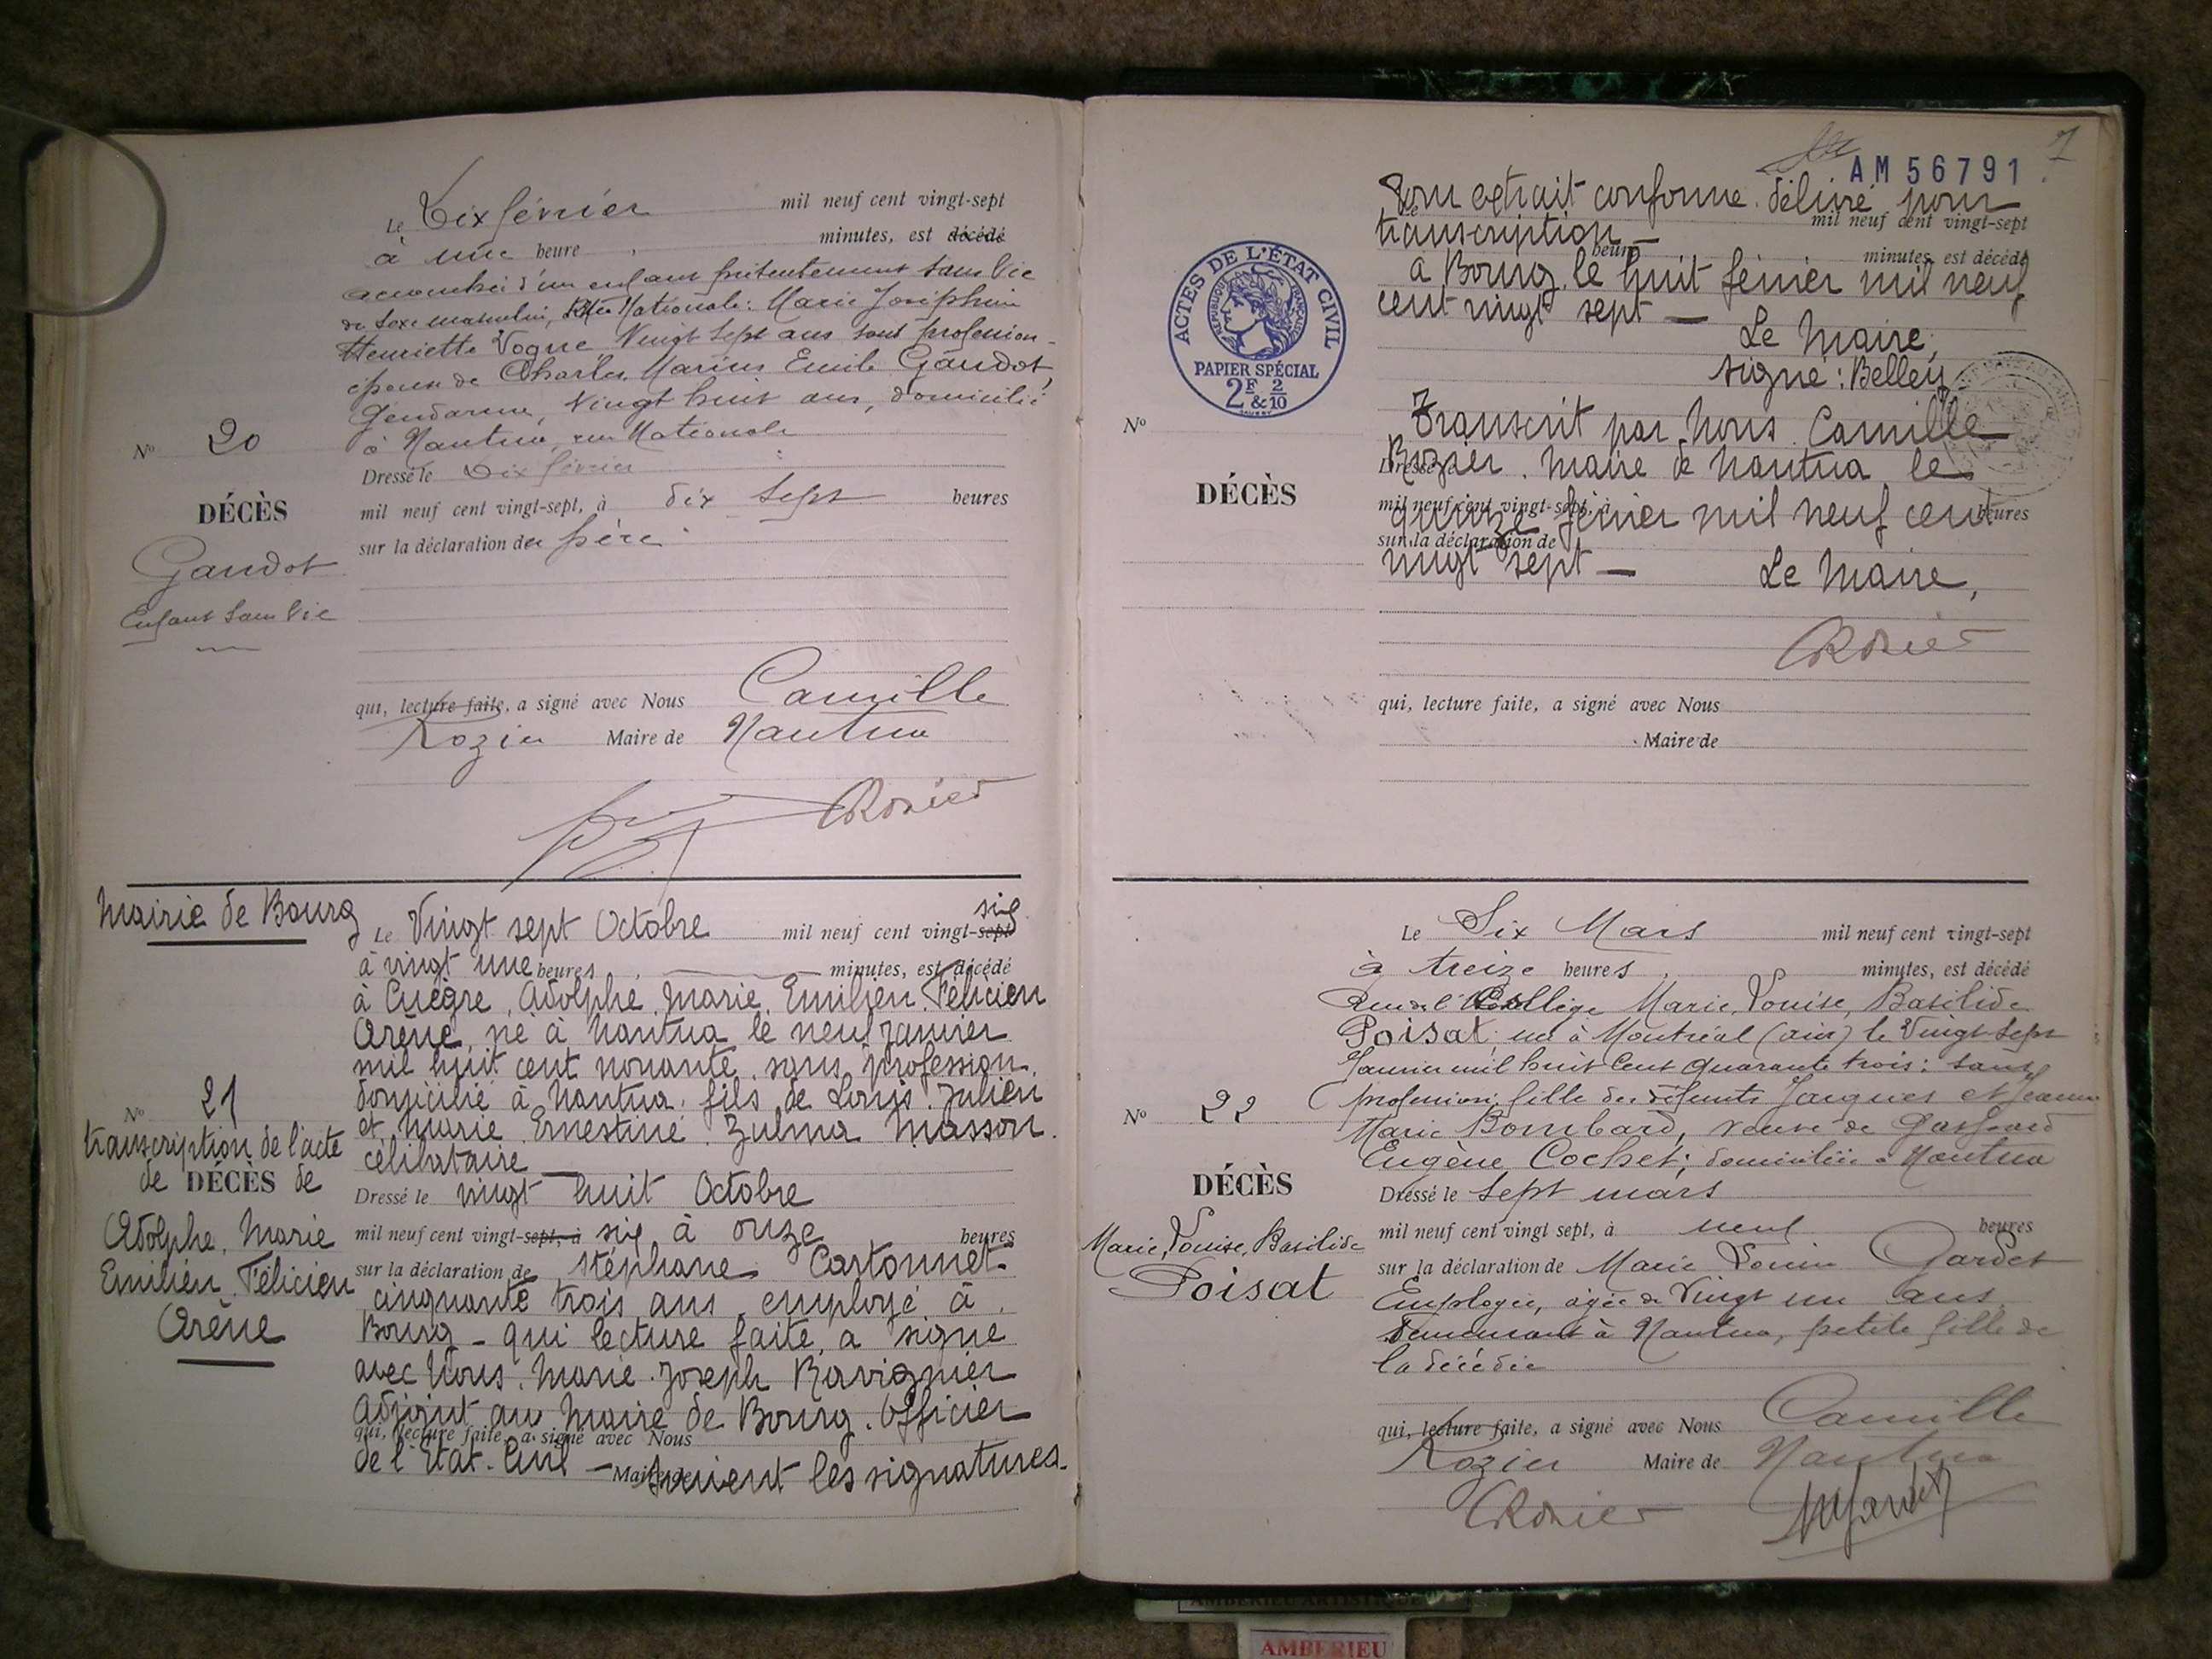 Le Dix février mil neuf cent vingt-sept
à une heure minutes, est décédé
accouchée d'un enfant présentement sans vie
de sexe masculin, Rue Nationale: Marie Joséphine
Henriette Vogne Vingt Sept ans sans profession
épouse de Charles Marius Emile Gaudot,
Gendarme, Vingt huit ans, domicilié
à Nantua, rue Nationale
No 20
DÉCÈS
Gaudot
Enfant Sans Vie
Dressé le Dix février
mil neuf cent vingt-sept, à dix sept heures
sur la déclaration du père
qui, lecture faite, a signé avec Nous Camille
Rozier Maire de Nantua
CRozier
Mairie de Bourg
Le Vingt sept Octobre mil neuf cent vingt-sept six
à vingt une heures minutes, est décédé
à Cuègre, Adolphe, Marie, Emilien, Félicien
Arène, né à Nantua le neuf janvier
mil huit cent nonante, sans profession,
domicilié à Nantua, fils de Louis, Julien
et Marie, Ernestine, Zulma Masson.
célibataire
No 21
transcription de l'acte
de DÉCÈS de
Adolphe, Marie
Emilien, Félicien
Arène
Dressé le vingt huit Octobre
mil neuf cent vingt-sept, à six à onze heures
sur la déclaration de Stéphane Cartonnet
cinquante trois ans, employé, à
Bourg - qui lecture faite, a signé
avec Nous, Marie-Joseph Ravignier
Adjoint au Maire de Bourg, Officier
qui, lecture faite, a signé avec Nous
de l'Etat-Civil - Maire de suivent les signatures.
7
AM 56791
ACTES DE L'ÉTAT CIVIL
RÉPUBLIQUE FRANÇAISE
PAPIER SPÉCIAL
2F & 2/10
Pour extrait conforme délivré pour
mil neuf cent vingt-sept
transcription -
heure minutes, est décédé
à Bourg, le huit février mil neuf
cent vingt sept -
Le Maire,
signé: Belley
No
DÉCÈS
Transcrit par Nous Camille
Rozier, Maire de Nantua le
Dressé le
mil neuf cent vingt-sept, à heures
quinze février mil neuf cent
sur la déclaration de
vingt sept - Le Maire,
CRozier
qui, lecture faite, a signé avec Nous
Maire de
Le Six Mars mil neuf cent vingt-sept
à treize heures, minutes, est décédé
Rue de l' Collège Marie, Louise, Basilide
Poisat, née à Montréal (ain) le Vingt Sept
Janvier mil huit Cent quarante trois: sans
profession, fille des défunts Jacques et Jeanne
Marie Bombard, veuve de Gaspard
Eugène Cochet; domiciliée à Nantua
No 22
DÉCÈS
Marie, Louise, Basilide
Poisat
Dressé le Sept mars
mil neuf cent vingt sept, à neuf heures
sur la déclaration de Marie Louise Gardet
Employée, âgée de Vingt un ans
demeurant à Nantua, petite fille de
la décédée
qui, lecture faite, a signé avec Nous Camille
Rozier Maire de Nantua
CRozier MGardet
AMBERIEU ARTISTIQUE
AMBERIEU